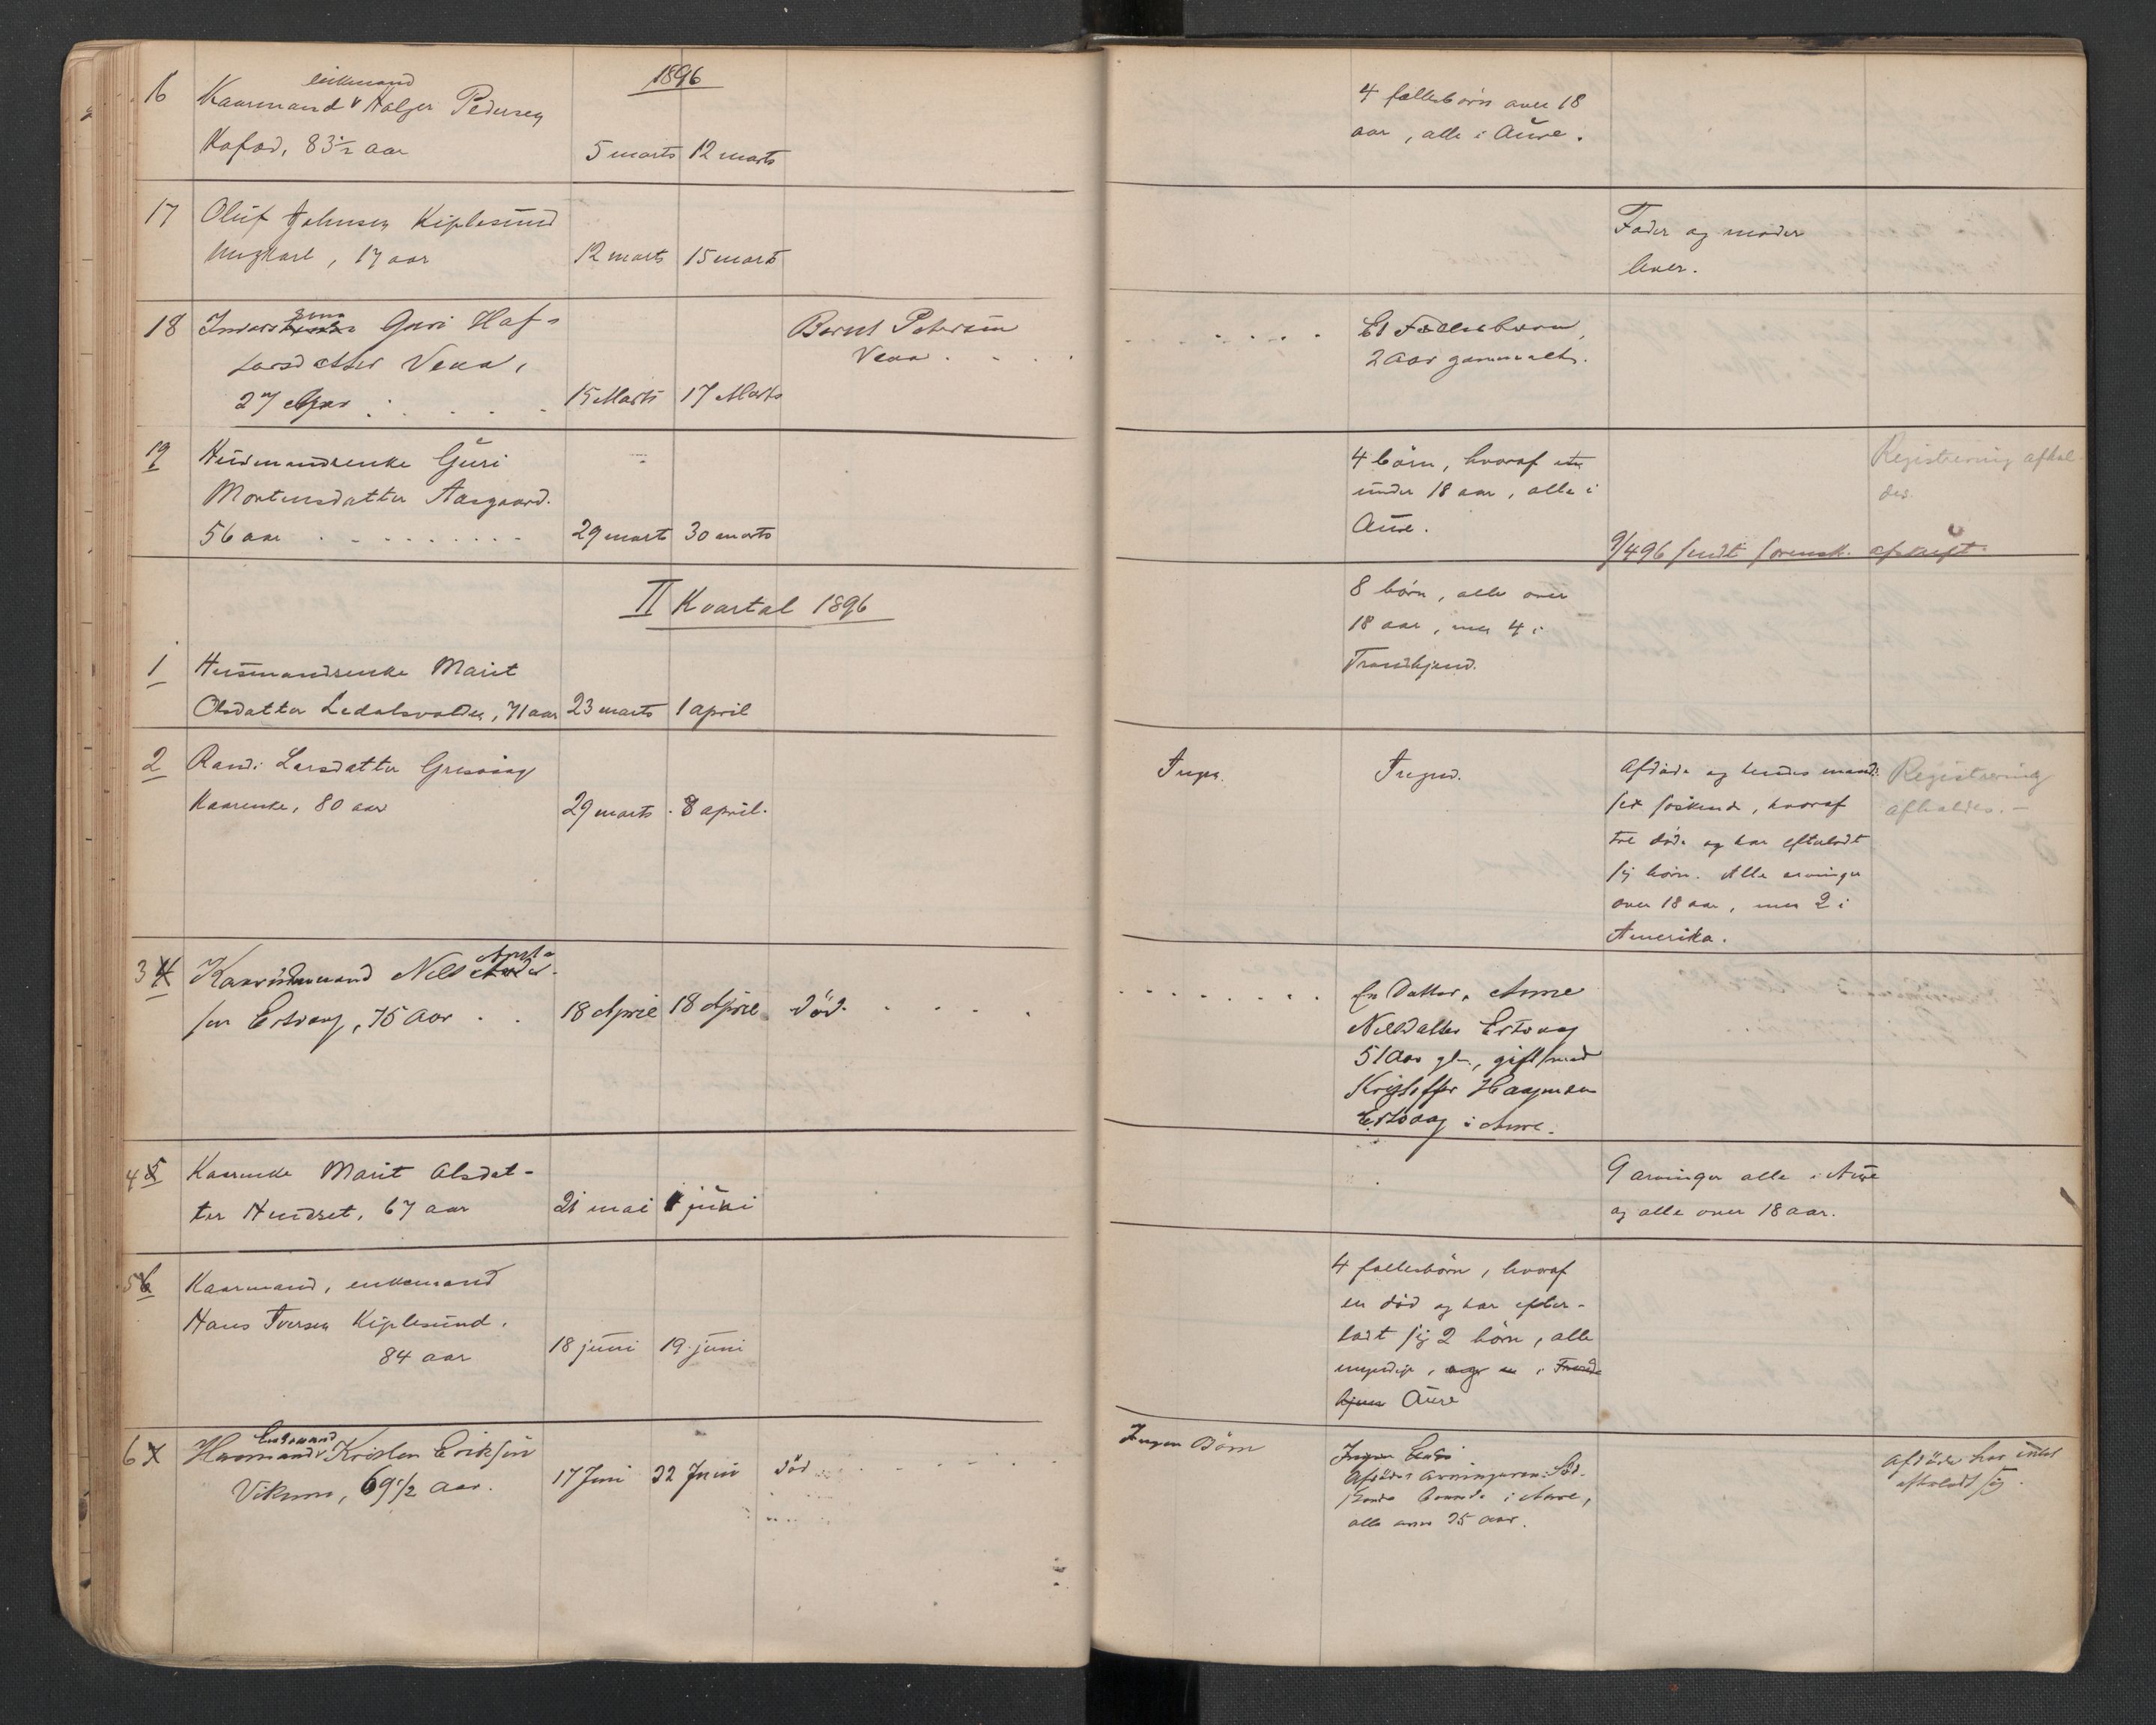 1896
16 Kaarmand enkemand Holger Pedersen
Kafod, 83½ aar 5 marts 12 marts
4 fællesbörn over 18
aar, alle i Aure.
17 Oluf Johnsen Kiplesund
Ungkarl, 17 aar 12 marts 15 marts
Fader og moder
lever.
18 Guri Haf-
torsdatter Vean,
27 Aar 15 Marts 17 Marts
Bernt Petersen
Vean
Et Fællesbarn,
2 Aar gammelt.
19 Husmandsenke Guri
Mortensdatter Aasgaard.
56 aar 29 marts 30 marts
4 börn, hvoraf
under 18 aar, alle i
Aure.
Registrering afhol-
des.
9/4 96 sendt sorensk. afskrift.
II Kvartal 1896
1 Husmandsenke Marit
Olsdatter Ledalsvolden, 71 aar 23 marts 1 april
8 börn, alle over
18 aar, 4 i
Trondhjem.
2 Randi Larsdatter Gresvaag
Kaarenke, 80 aar 29 marts 8 april.
Ingen.
Ingen.
Afdöde og hendes mand
söskend, hvoraf
tre döde og har efterladt
sig börn. Alle arvinger
over 18 aar, 2 i
Amerika.
Registrering
afholdes.
3 4 Nils
sen Ertvaag, 75 Aar 18 April 18 April död
En Datter, Anne
Nilsdatter Ertvaag
51 Aar gl., gift med
Kristoffer Haagensen
Ertvaag i Aure.
4 5 Kaarenke Marit Olsdat-
ter Hendset, 67 aar 21 mai 1 juni
9 arvinger alle i Aure
og alle over 18 aar.
5 6 Kaarmand, enkemand
Hans Iversen Kiplesund.
84 aar 18 juni 19 juni
4 fællesbörn, hvoraf
en död og har efter-
ladt sig 2 börn, alle
myndige, i
Aure
6 Enkemand Kristen Eriksen
Vikum, 69½ Aar. 17 Juni 22 Juni död
Ingen Börn
Ingen
Afdödes Arvinger
i Aure,
alle over 25 Aar.
Afdöde har intet
efterladt sig.